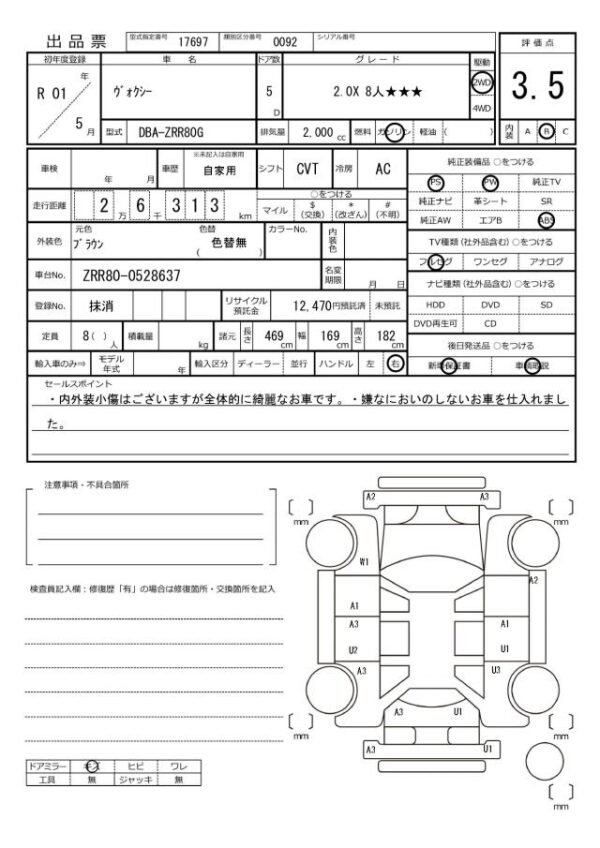 出品票
型式指定番号 17697 類別区分番号 0092 シリアル番号
評価点
3.5
内装 A B C
初年度登録 車名 ドア数 グレード 駆動
R 01 年 5 月
ヴォクシー
5 D
2.0X 8人★★★
2WD
4WD
型式 DBA-ZRR80G 排気量 2,000 cc 燃料 ガソリン 軽油 ( )
車検 年 月 車歴 ※未記入は自家用 自家用 シフト CVT 冷房 AC
走行距離 2 万 6 千 3 1 3 km
○をつける
マイル $(交換) *(改ざん) #(不明)
外装色 元色 ブラウン 色替 色替無 ( ) カラーNo. 内装色
車台No. ZRR80-0528637 名変期限 月 日
登録No. 抹消 リサイクル預託金 12,470円預託済 未預託
定員 8( ) 人 積載量 kg 諸元 長さ 469 cm 幅 169 cm 高さ 182 cm
輸入車のみ⇒ モデル年式 年 輸入区分 ディーラー 並行 ハンドル 左 右
純正装備品 ○をつける
PS PW 純正TV
純正ナビ 革シート SR
純正AW エアB ABS
TV種類 (社外品含む) ○をつける
フルセグ ワンセグ アナログ
ナビ種類 (社外品含む) ○をつける
HDD DVD SD
DVD再生可 CD
後日発送品 ○をつける
新車保証書 車輌取説
セールスポイント
・内外装小傷はございますが全体的に綺麗なお車です。・嫌なにおいのしないお車を仕入れまし
た。
注意事項・不具合箇所
検査員記入欄：修復歴「有」の場合は修復箇所・交換箇所を記入
ドアミラー キズ ヒビ ワレ
工具 無 ジャッキ 無
A2 A3
mm mm
W1
A2
A1
A3 A1
U2 U1
A3 U3
A3 U1
mm mm
A3 U1
mm